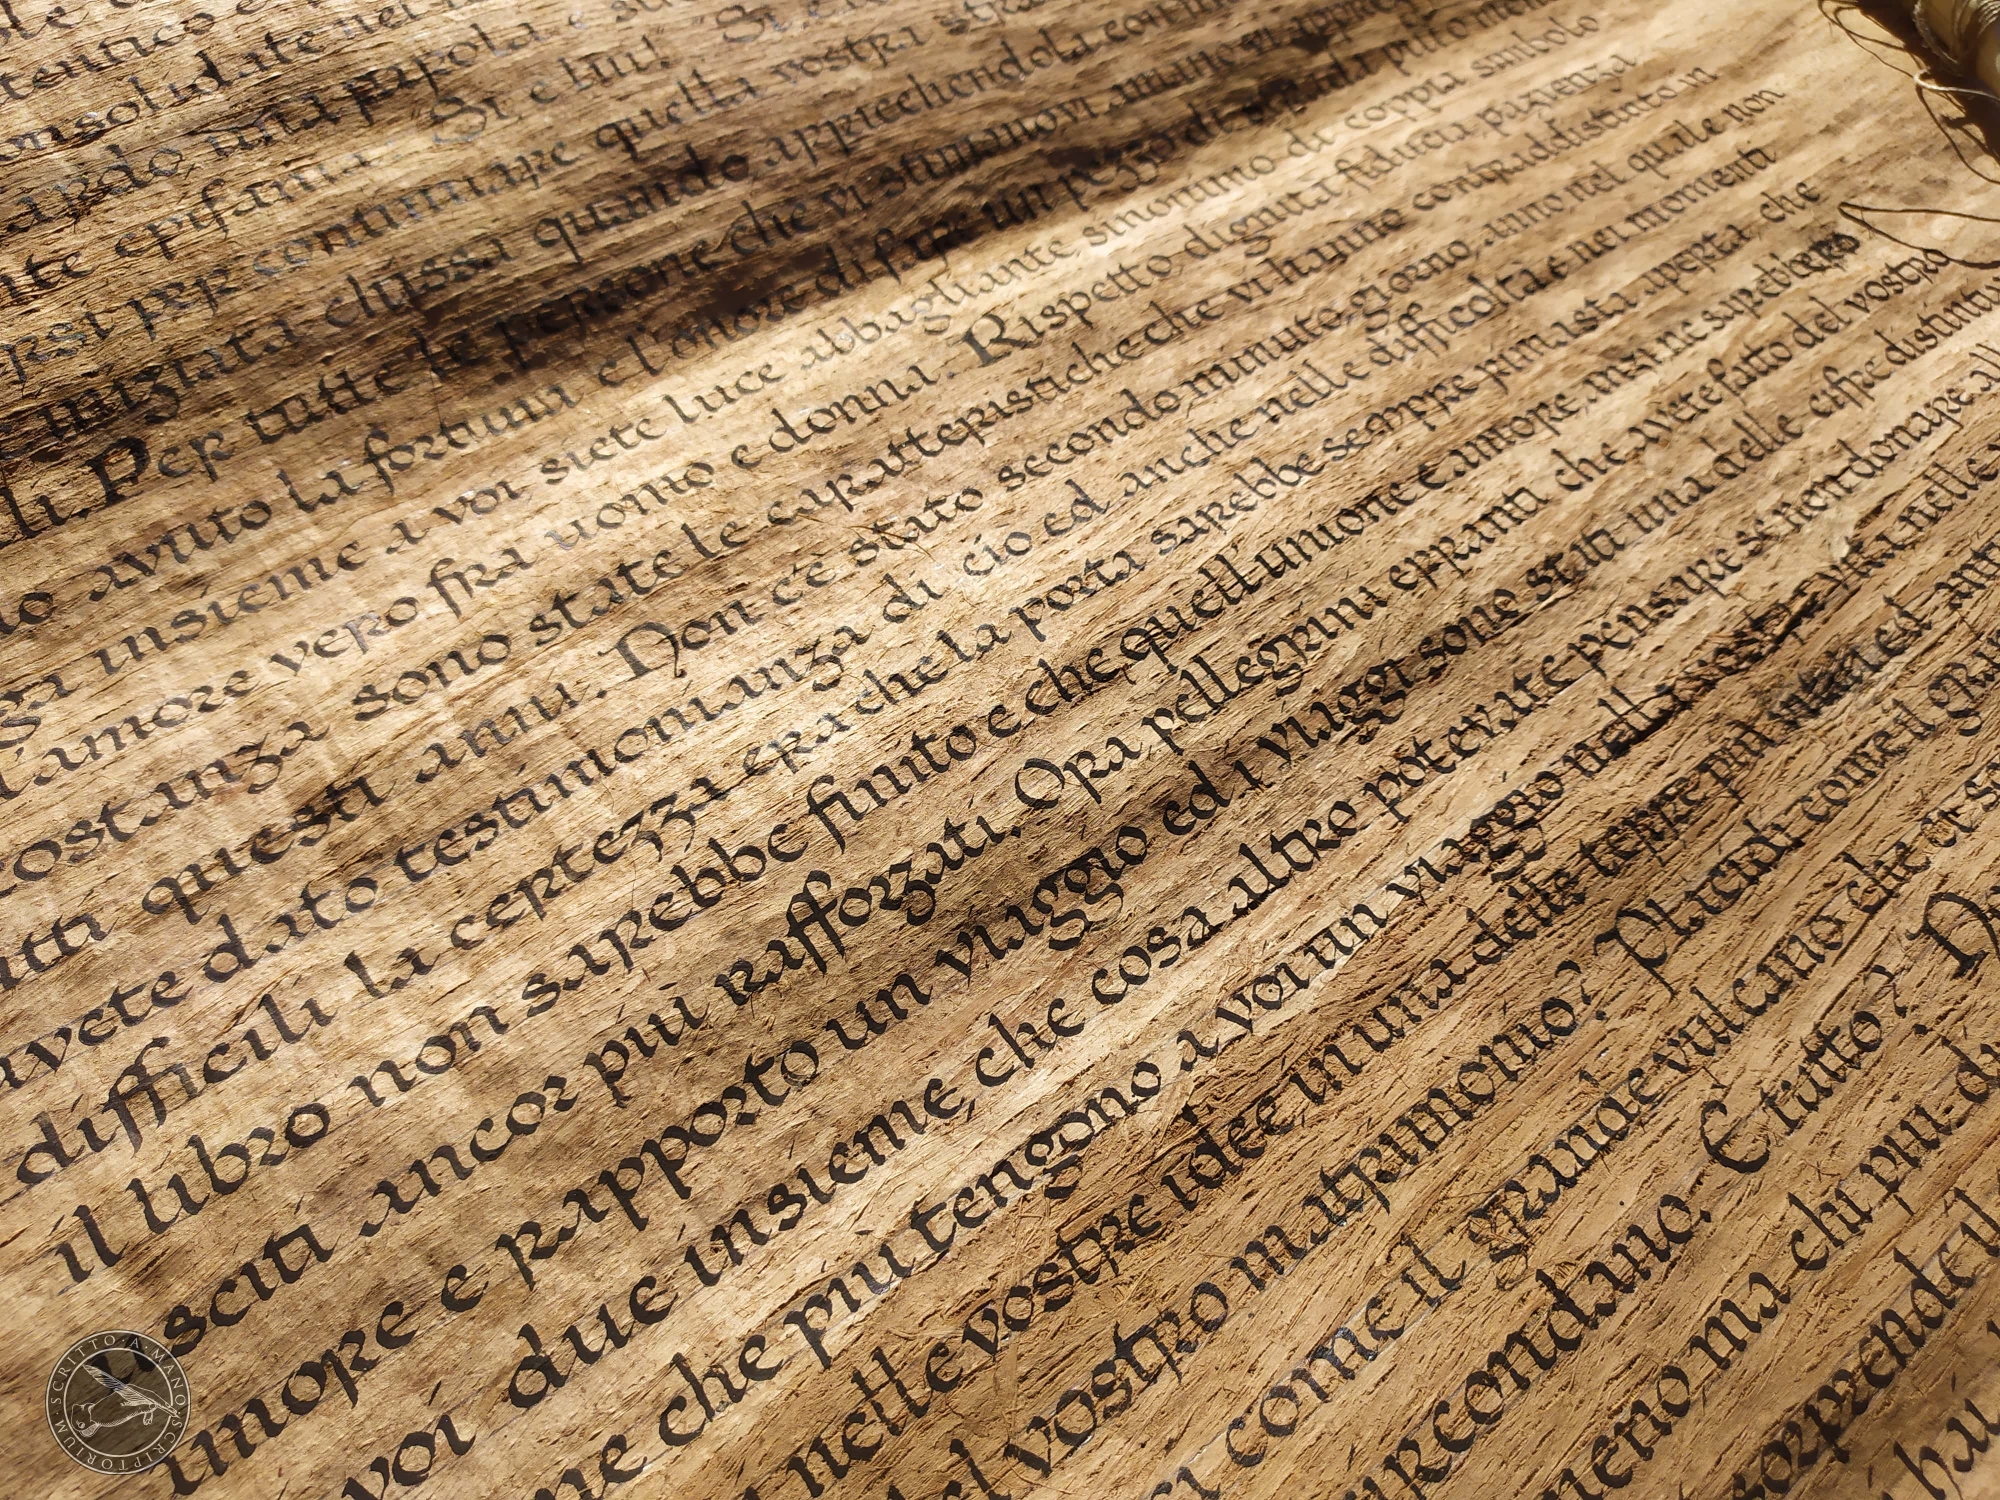 tentico e
onsolidate nei
ardo una parola e
nte epifania. Si e lui! Si
ersi per continuare quella vostra
iniziata chissa quando apprendendola con
li. Per tutte le persone che vi stimano vi amano vi
do avuto la fortuna e l'onore di un pezzo di
ga insieme a voi siete luce abbagliante sinonimo di coppia simbolo
l'amore vero fra uomo e donna. Rispetto dignita fiducia pazienza
costanza sono state le caratteristiche che vi hanno contraddistinto in
utti questi anni. Non c'e stato secondo minuto, giorno, anno nel quale non
avete dato testimonianza di cio ed anche nelle difficolta e nei momenti
difficili la certezza era che la porta sarebbe sempre rimasta aperta, che
il libro non sarebbe finito e che quell'unione e amore, in ne sarebbero
usciti ancor più rafforzati. Ora pellegrini erranti che avete fatto del vostro
amore e rapporto un viaggio ed i viaggi sono stati una delle cifre distintive
voi due insieme, che cosa altro potevate pensare se non donare al
ne che più tengono a voi un viaggio nella vostra vita nelle
nelle vostre idee in una delle terre più intatta ed
el vostro matrimonio? Placidi come il
ci come il grande vulcano che
circondano. E tutto? No
nerio, ma chi più di
sorprende il
hu
SCRITTO·A·MANO·SCRIPTORIUM